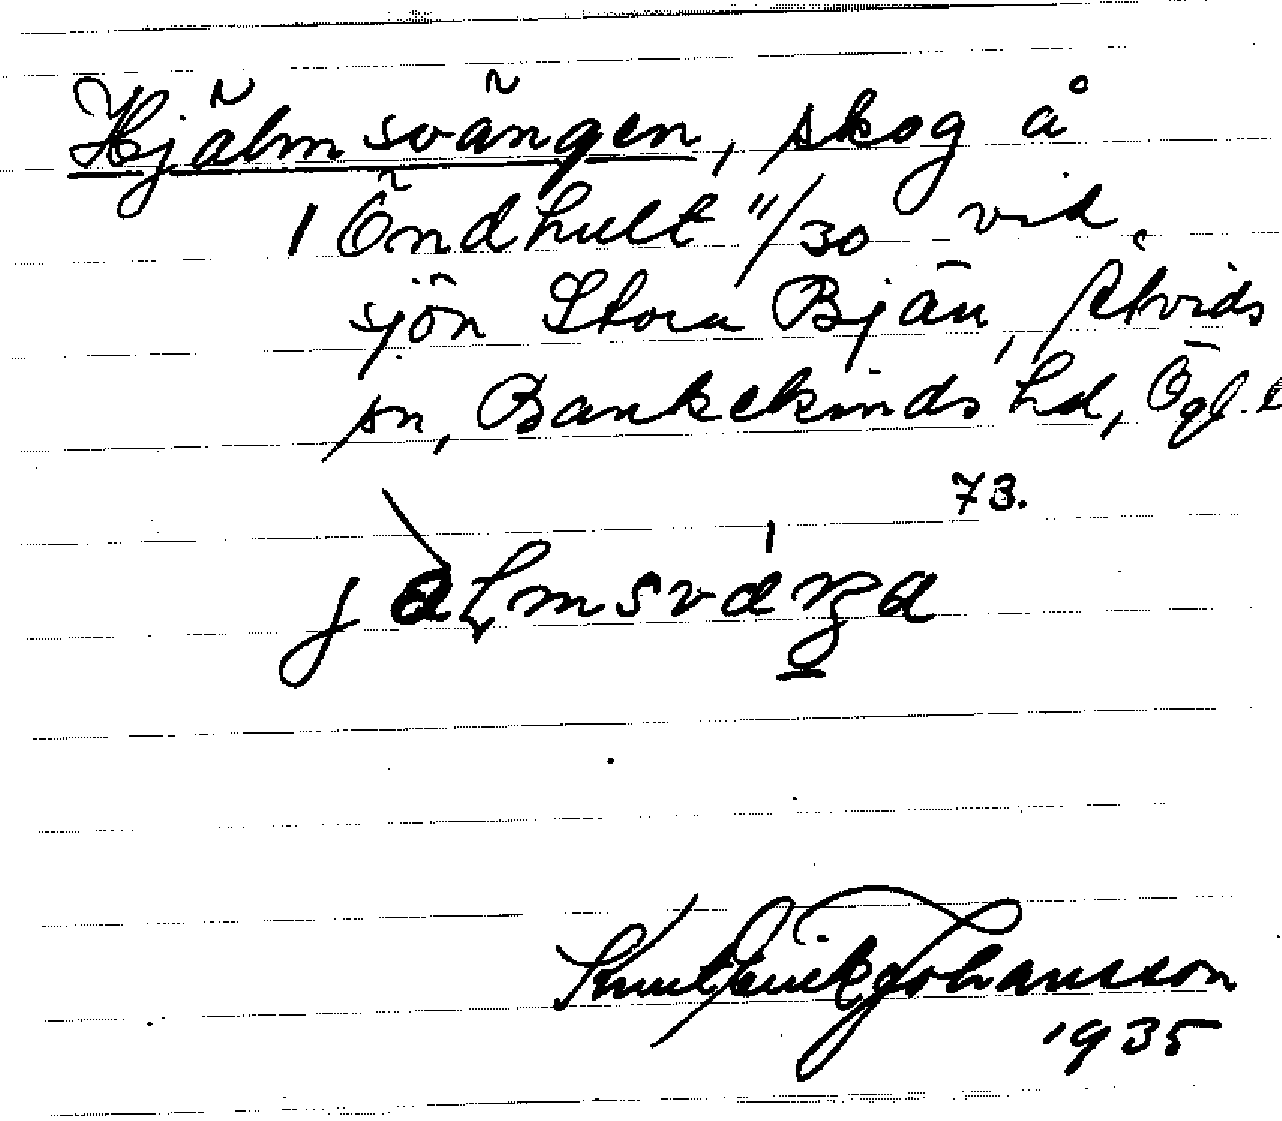 Hjälmsvängen, skog å
1 Öndhult 11/30 vid
sjön Stora Bjän, Åtvids
sn, Bankekinds hd, Ögl.
73.
Knut Erik Johansson
1935